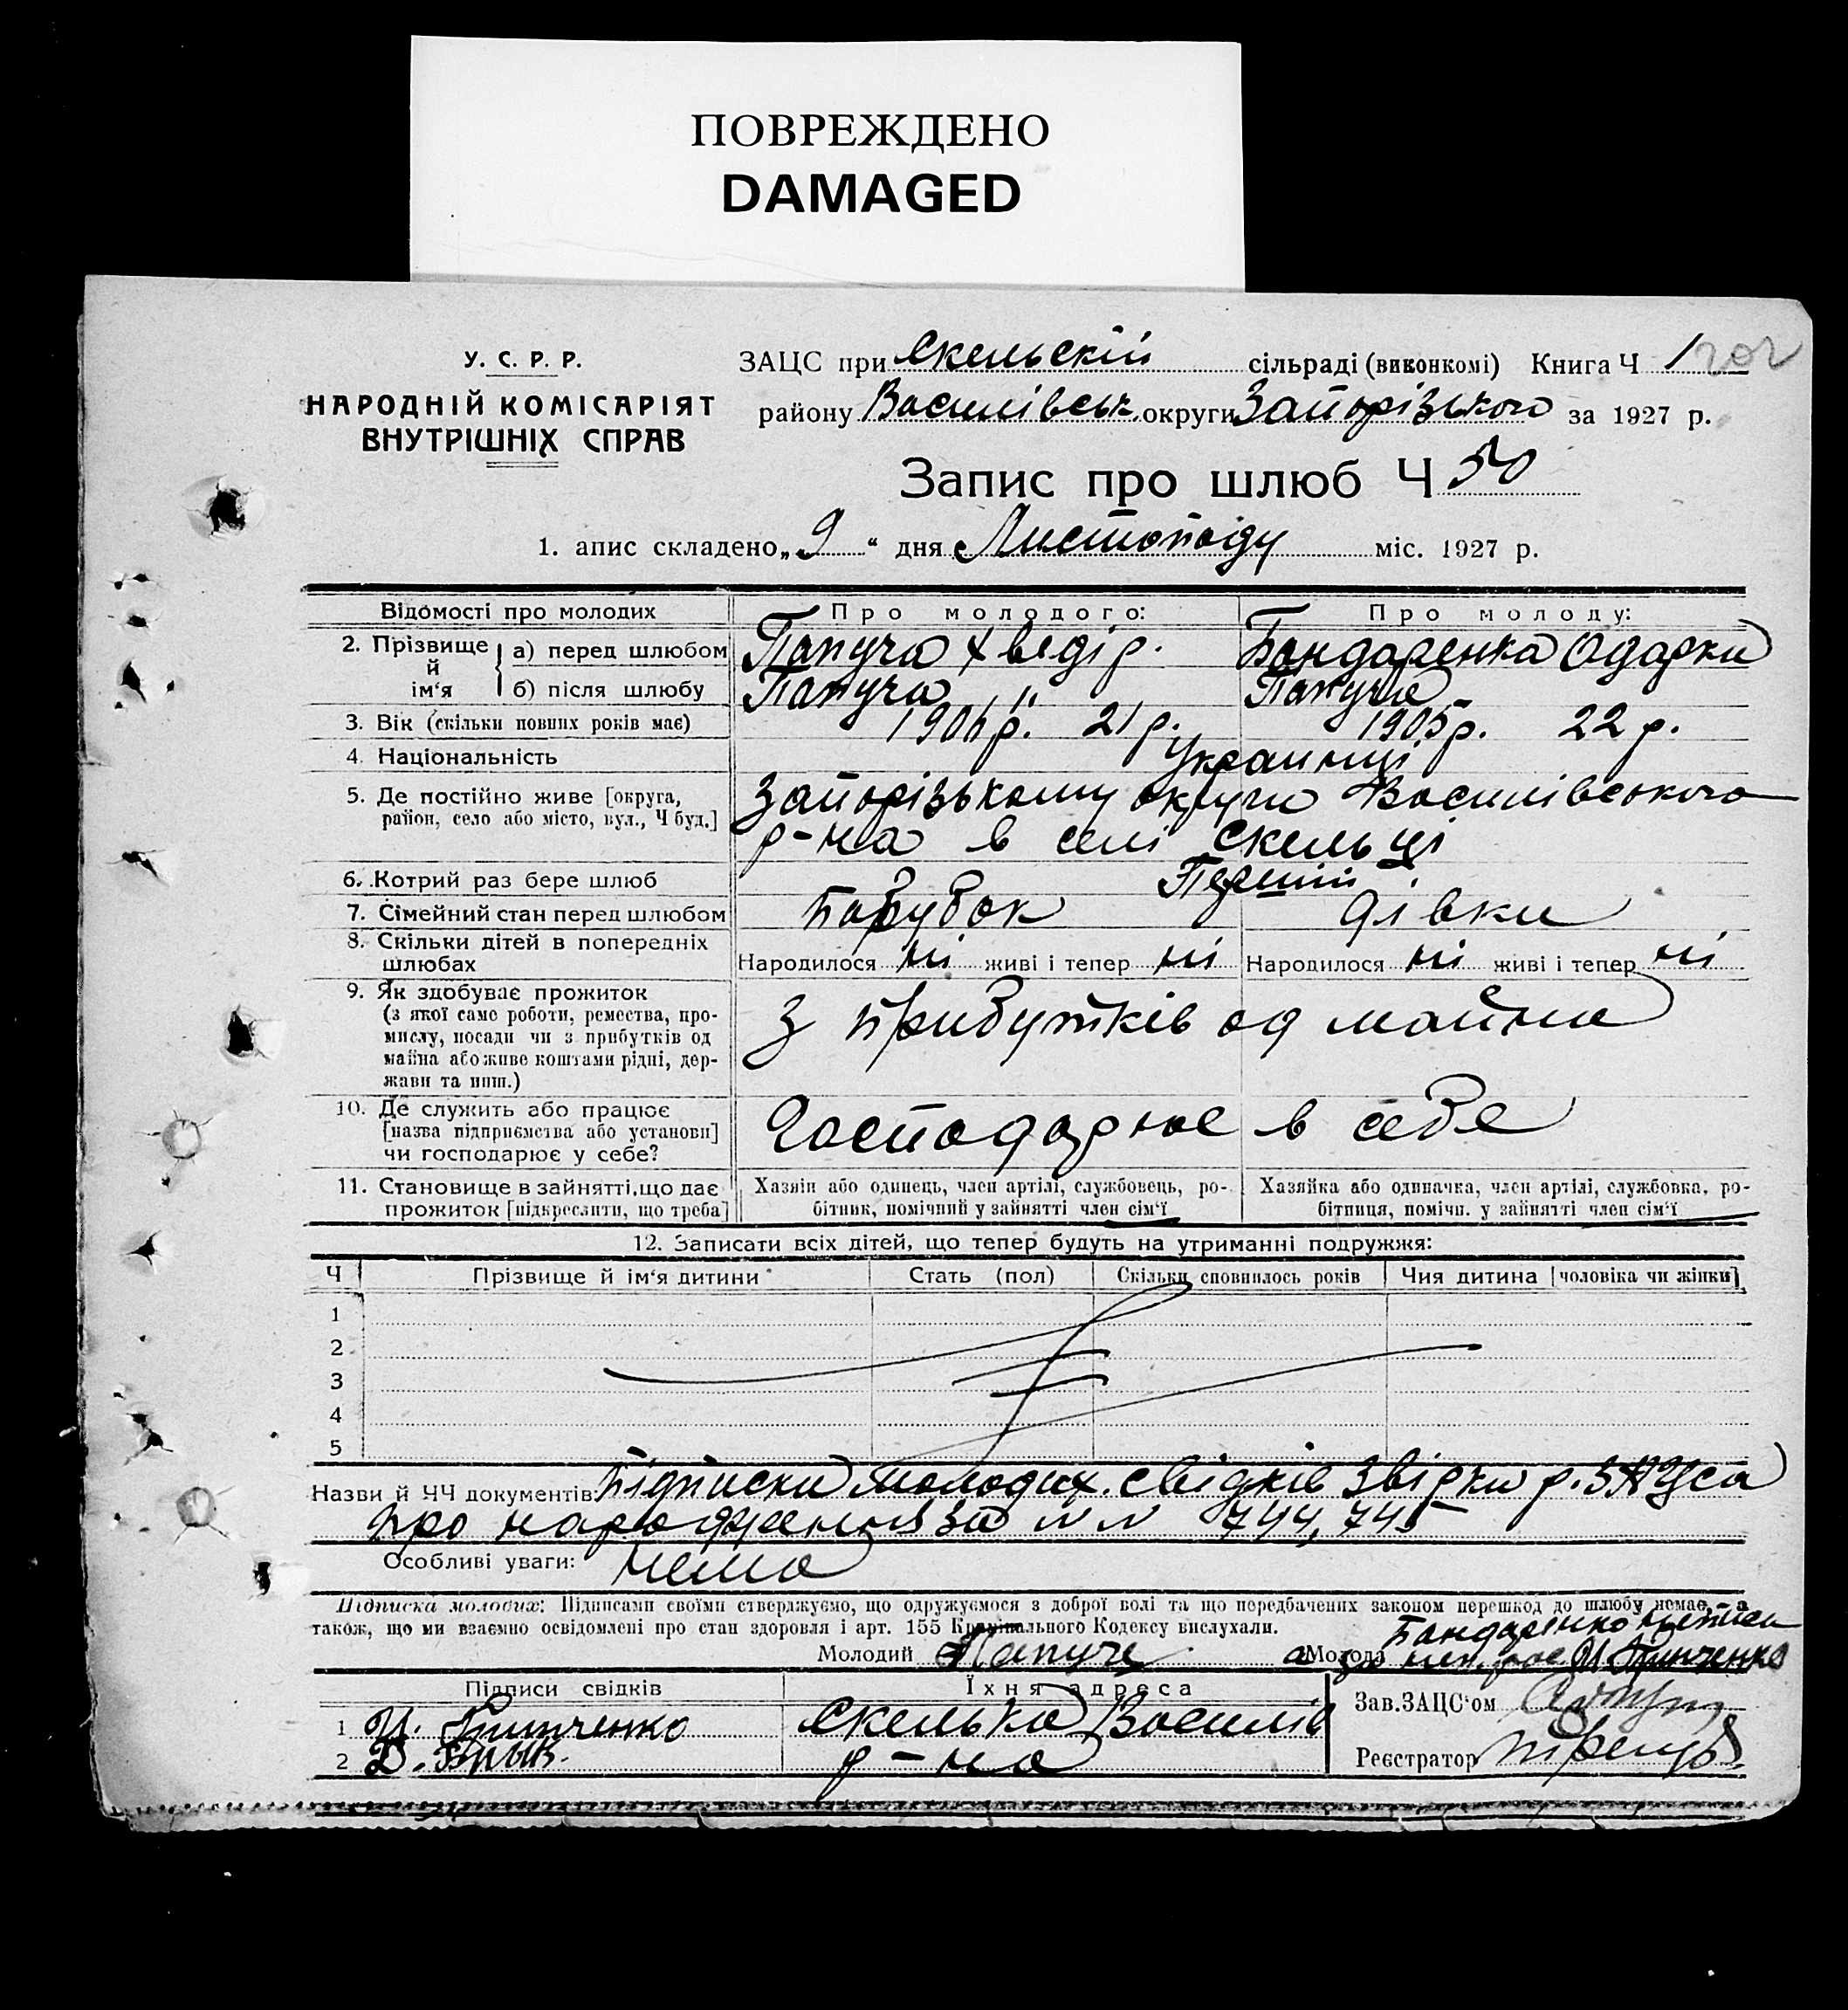 ПОВРЕЖДЕНО
DAMAGED
У. С. Р. Р.
НАРОДНІЙ КОМІСАРІЯТ
ВНУТРІШНІХ СПРАВ
ЗАЦС при Скельскій сільраді (виконкомі) Книга Ч 1 202
району Василівськ. округи Запорізького за 1927 р.
Запис про шлюб Ч 50
1. апис складено „ 9 “ дня Листопаду міс. 1927 р.
Відомості про молодих Про молодого: Про молоду:
2. Прізвище й ім‘я
а) перед шлюбом Папуча Хведір. Бондаренка Одарки
б) після шлюбу Папуча " Папуча
3. Вік (скільки повних років має) 1906 р. 21 р. 1905 р. 22 р.
4. Національність Украинці
5. Де постійно живе [округа, Запорізькому округи Василівського
район, село або місто, вул., Ч буд.] р-на в селі Скельці
6. Котрий раз бере шлюб Перший
7. Сімейний стан перед шлюбом Парубок дівки
8. Скільки дітей в попередніх
шлюбах Народилося ні живі і тепер ні Народилося ні живі і тепер ні
9. Як здобуває прожиток
(з якої саме роботи, ремества, про-
мислу, посади чи з прибутків од
майна або живе коштами рідні, дер-
жави та инш.)
З прибутків од майна
10. Де служить або працює
[назва підприємства або установи]
чи господарює у себе?
Господарює в себе
11. Становище в зайнятті, що дає
прожиток [підкреслити, що треба]
Хазяїн або одинець, член артілі, службовець, ро-
бітник, помічний у зайнятті член сім‘ї
Хазяйка або одиначка, член артілі, службовка, ро-
бітниця, помічн. у зайнятті член сім‘ї
12. Записати всіх дітей, що тепер будуть на утриманні подружжя:
Ч Прізвище й ім‘я дитини Стать (пол) Скільки сповнилось років Чия дитина [чоловіка чи жінки]
1
2
3
4
5
Назви й ЧЧ документів: Підписки молодих. свідків Звірки р. ЗАЦСа
про народження за NN 744, 745
Особливі уваги: нема
Підписка молодих: Підписами своїми стверджуємо, що одружуємося з доброї волі та що передбачених законом перешкод до шлюбу немає, а
також, що ми взаємно освідомлені про стан здоровля і арт. 155 Кримінального Кодексу вислухали.
Молодий Папуча Молода Бондаренко
Гринченко
Підписи свідків Їхня адреса
1 Гринченко Скелька Василів
2 Д. р-на
Зав. ЗАЦС‘ом
Реєстратор